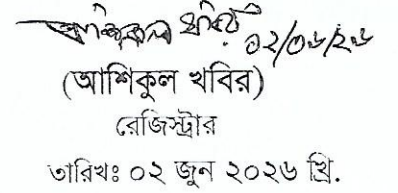 আশিকুল খবির ০২/০৬/২৬
(আশিকুল খবির)
রেজিস্ট্রার
তারিখঃ ০২ জুন ২০২৬ খ্রি.